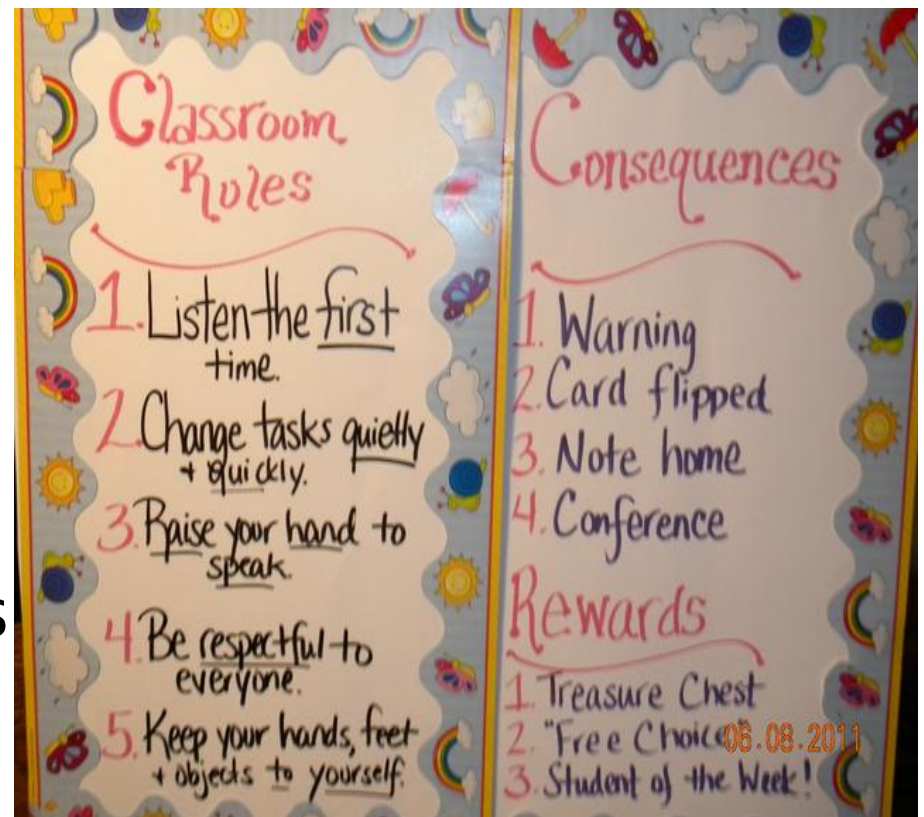 Classroom
Rules
1. Listen the first
time.
2. Change tasks quietly
+ quickly.
3. Raise your hand to
speak.
4. Be respectful to
everyone.
5. Keep your hands, feet
+ objects to yourself.
Consequences
1. Warning
2. Card flipped
3. Note home
4. Conference
Rewards
1. Treasure Chest
2. "Free Choice"
3. Student of the Week!
06.08.2011
s